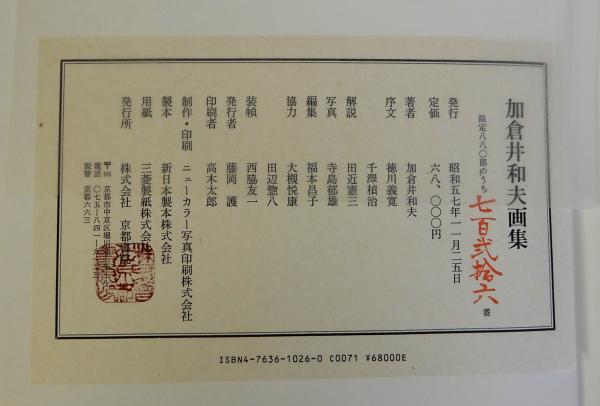 加倉井和夫画集
限定八八〇部のうち 七百弐拾六 番
発行 昭和五七年一一月二五日
定価 六八、〇〇〇円
著者 加倉井和夫
序文 徳川義寛
千澤楨治
解説 田近憲三
写真 寺島郁雄
編集 福本昌子
協力 大槻悦康
田辺惣八
装幀 西脇友一
発行者 藤岡 護
印刷者 高木太郎
制作・印刷 ニューカラー写真印刷株式会社
製本 新日本製本株式会社
用紙 三菱製紙株式会社
発行所 株式会社 京都書院
〒604 京都市中京区堀川
電話 〇七五―八四一―九
振替 京都六六三
ISBN4-7636-1026-0 C0071 ¥68000E